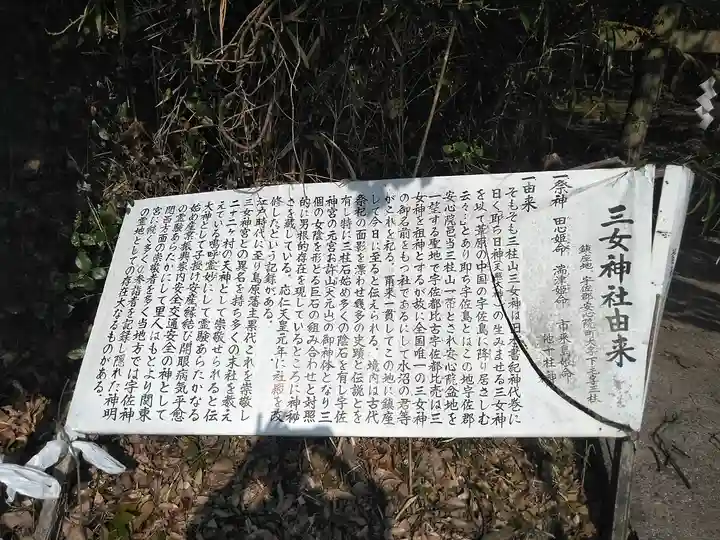 三女神社由来
鎮座地 宇佐郡安心院町大字下毛字三柱
一祭神 田心姫命 湍津姫命 市杵島姫命
他十柱神
一由来
そもそも三柱山三女神は日本書紀神代巻に
曰く、即ち日神天照大神の生みませる三女神
を以て葦原の中国の宇佐島に降り居さしむ
云々…とあり即ち宇佐島とはこの地宇佐郡
安心院邑当三柱山一帯とされ安心院盆地を
一望する聖地で宇佐都比古宇佐都比売は三
女神を祖神とするが故に全国唯一の三女神
の御名前をもつ社であるにして水沼の君等
がこれを祀る、爾来一貫してこの地に鎮座
して今日に至ると伝えられる。境内は古代
祭祀の面影を漂わせ幾多の史蹟と伝説とを
有し特に三柱石始め多くの陰石を有し宇佐
神宮の元宮お許山(大元山)の御神体となり三
個の女陰を形どる巨石の組み合わせと対照
的に男根的存在を現しているところに神秘
さを蔵している。応仁天皇元年に社殿を改
修したという記録がある。
江戸時代に至り島原藩主累代これを崇敬し
三女神宮との異名を持ち多くの末社を数え
二十二ヶ村の大神として崇敬せられると伝
えている鳴呼霊妙にして霊験あらたかなる
大神として子授け安産縁結び開眼病気平愈
始め産業振興家内安全交通安全の神として
の霊験あらたかにして里人はもとより関東
関西方面の崇敬者を記録し隠れた神明
宮に続く多くの参詣者を多く当地方では宇佐神
の霊地としての存在大なるものがある。